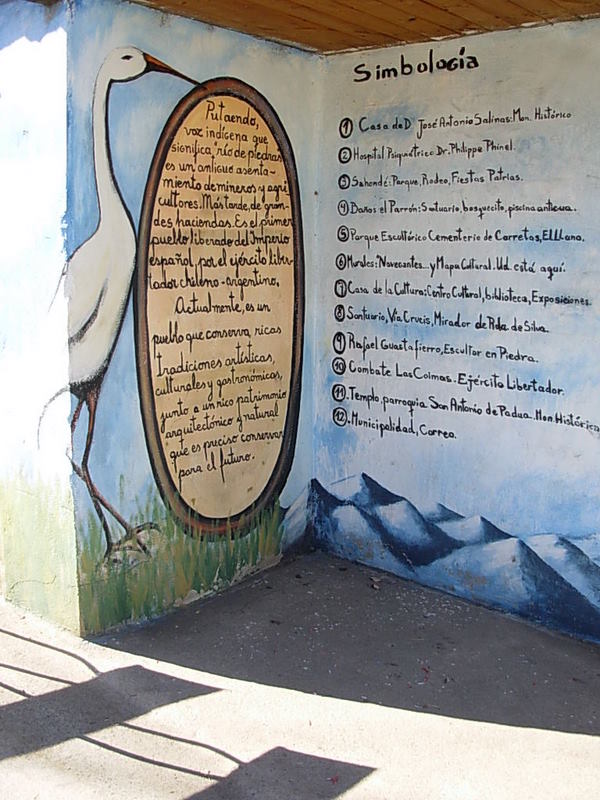 Putaendo,
voz indígena que
significa "río de piedras
es un antiguo asenta-
miento de mineros y agri
cultores. Más tarde, de gran-
des haciendas. Es el primer
pueblo liberado del Imperio
español, por el ejército liber-
tador chileno-argentino.
Actualmente, es un
pueblo que conserva ricas
tradiciones artísticas,
culturales y gastronómicas,
junto a un rico patrimonio
arquitectónico y natural
que es preciso conservar
para el futuro.
Simbología
1 Casa de D José Antonio Salinas: Mon. Histórico
2 Hospital Psiquiátrico Dr. Philippe Phinel.
3 Sahondé: Parque, Rodeo, Fiestas Patrias.
4 Baños el Parrón: Santuario, bosquecito, piscina antigua.
5 Parque Escultórico Cementerio de Carretas, El Llano.
6 Murales: Novecantes...y Mapa Cultural. Ud. está aquí.
7 Casa de la Cultura: Centro Cultural, biblioteca, Exposiciones.
8 Santuario, Vía Crucis, Mirador de Rda. de Silva.
9 Rafael Guastafierro, Escultor en Piedra.
10 Combate Las Coimas. Ejército Libertador.
11. Templo, parroquia San Antonio de Padua. Mon. Histórico
12. Municipalidad, Correo.